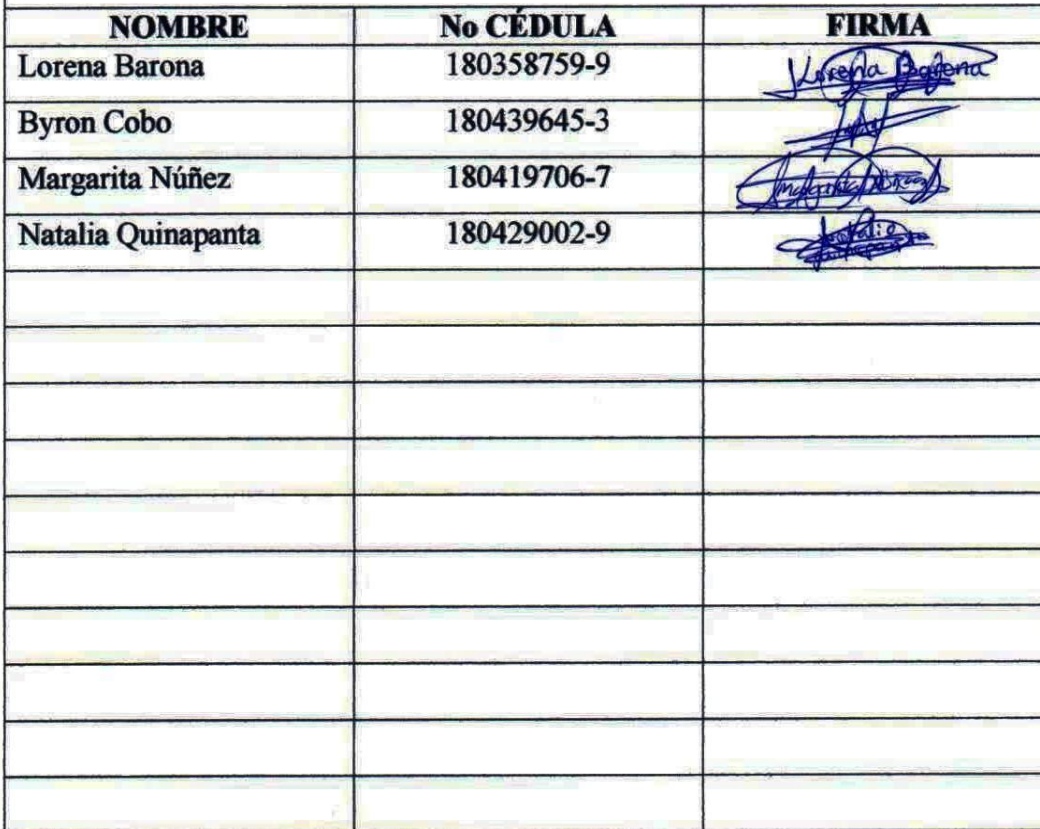 NOMBRE No CÉDULA FIRMA
Lorena Barona 180358759-9 Lorena Barona
Byron Cobo 180439645-3
Margarita Núñez 180419706-7 Margarita Núñez
Natalia Quinapanta 180429002-9 Natalia